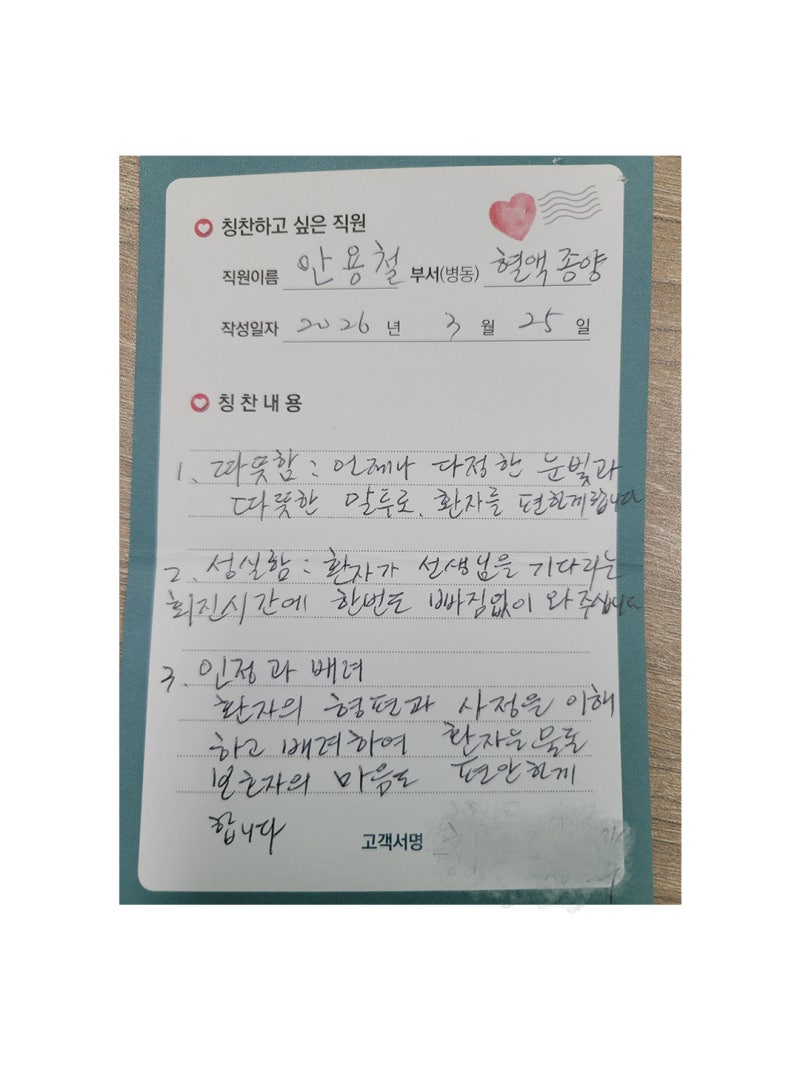 칭찬하고 싶은 직원
직원이름 안용철 부서(병동) 혈액종양
작성일자 2026 년 3 월 25 일
칭찬내용
1. 따뜻함 : 언제나 다정한 눈빛과
따뜻한 말투로, 환자를 편한게합니다
2. 성실함 : 환자가 선생님을 기다리는
회진시간에 한번도 빠짐없이 와주십니다
3. 인정과 배려
환자의 형편과 사정을 이해
하고 배려하여 환자는 물론
보호자의 마음도 편안한게
합니다
고객서명